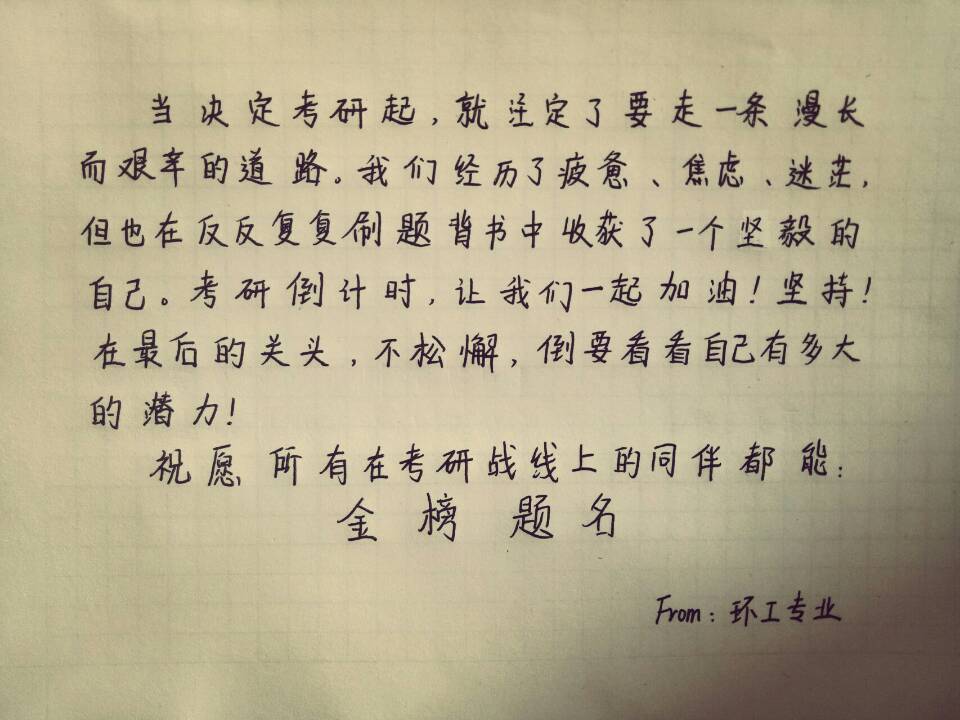 当决定考研起,就注定了要走一条漫长
而艰辛的道路。我们经历了疲惫、焦虑、迷茫,
但也在反反复复刷题背书中收获了一个坚毅的
自己。考研倒计时,让我们一起加油!坚持!
在最后的关头,不松懈,倒要看看自己有多大
的潜力!
祝愿所有在考研战线上的同伴都能:
金榜题名
From:环工专业